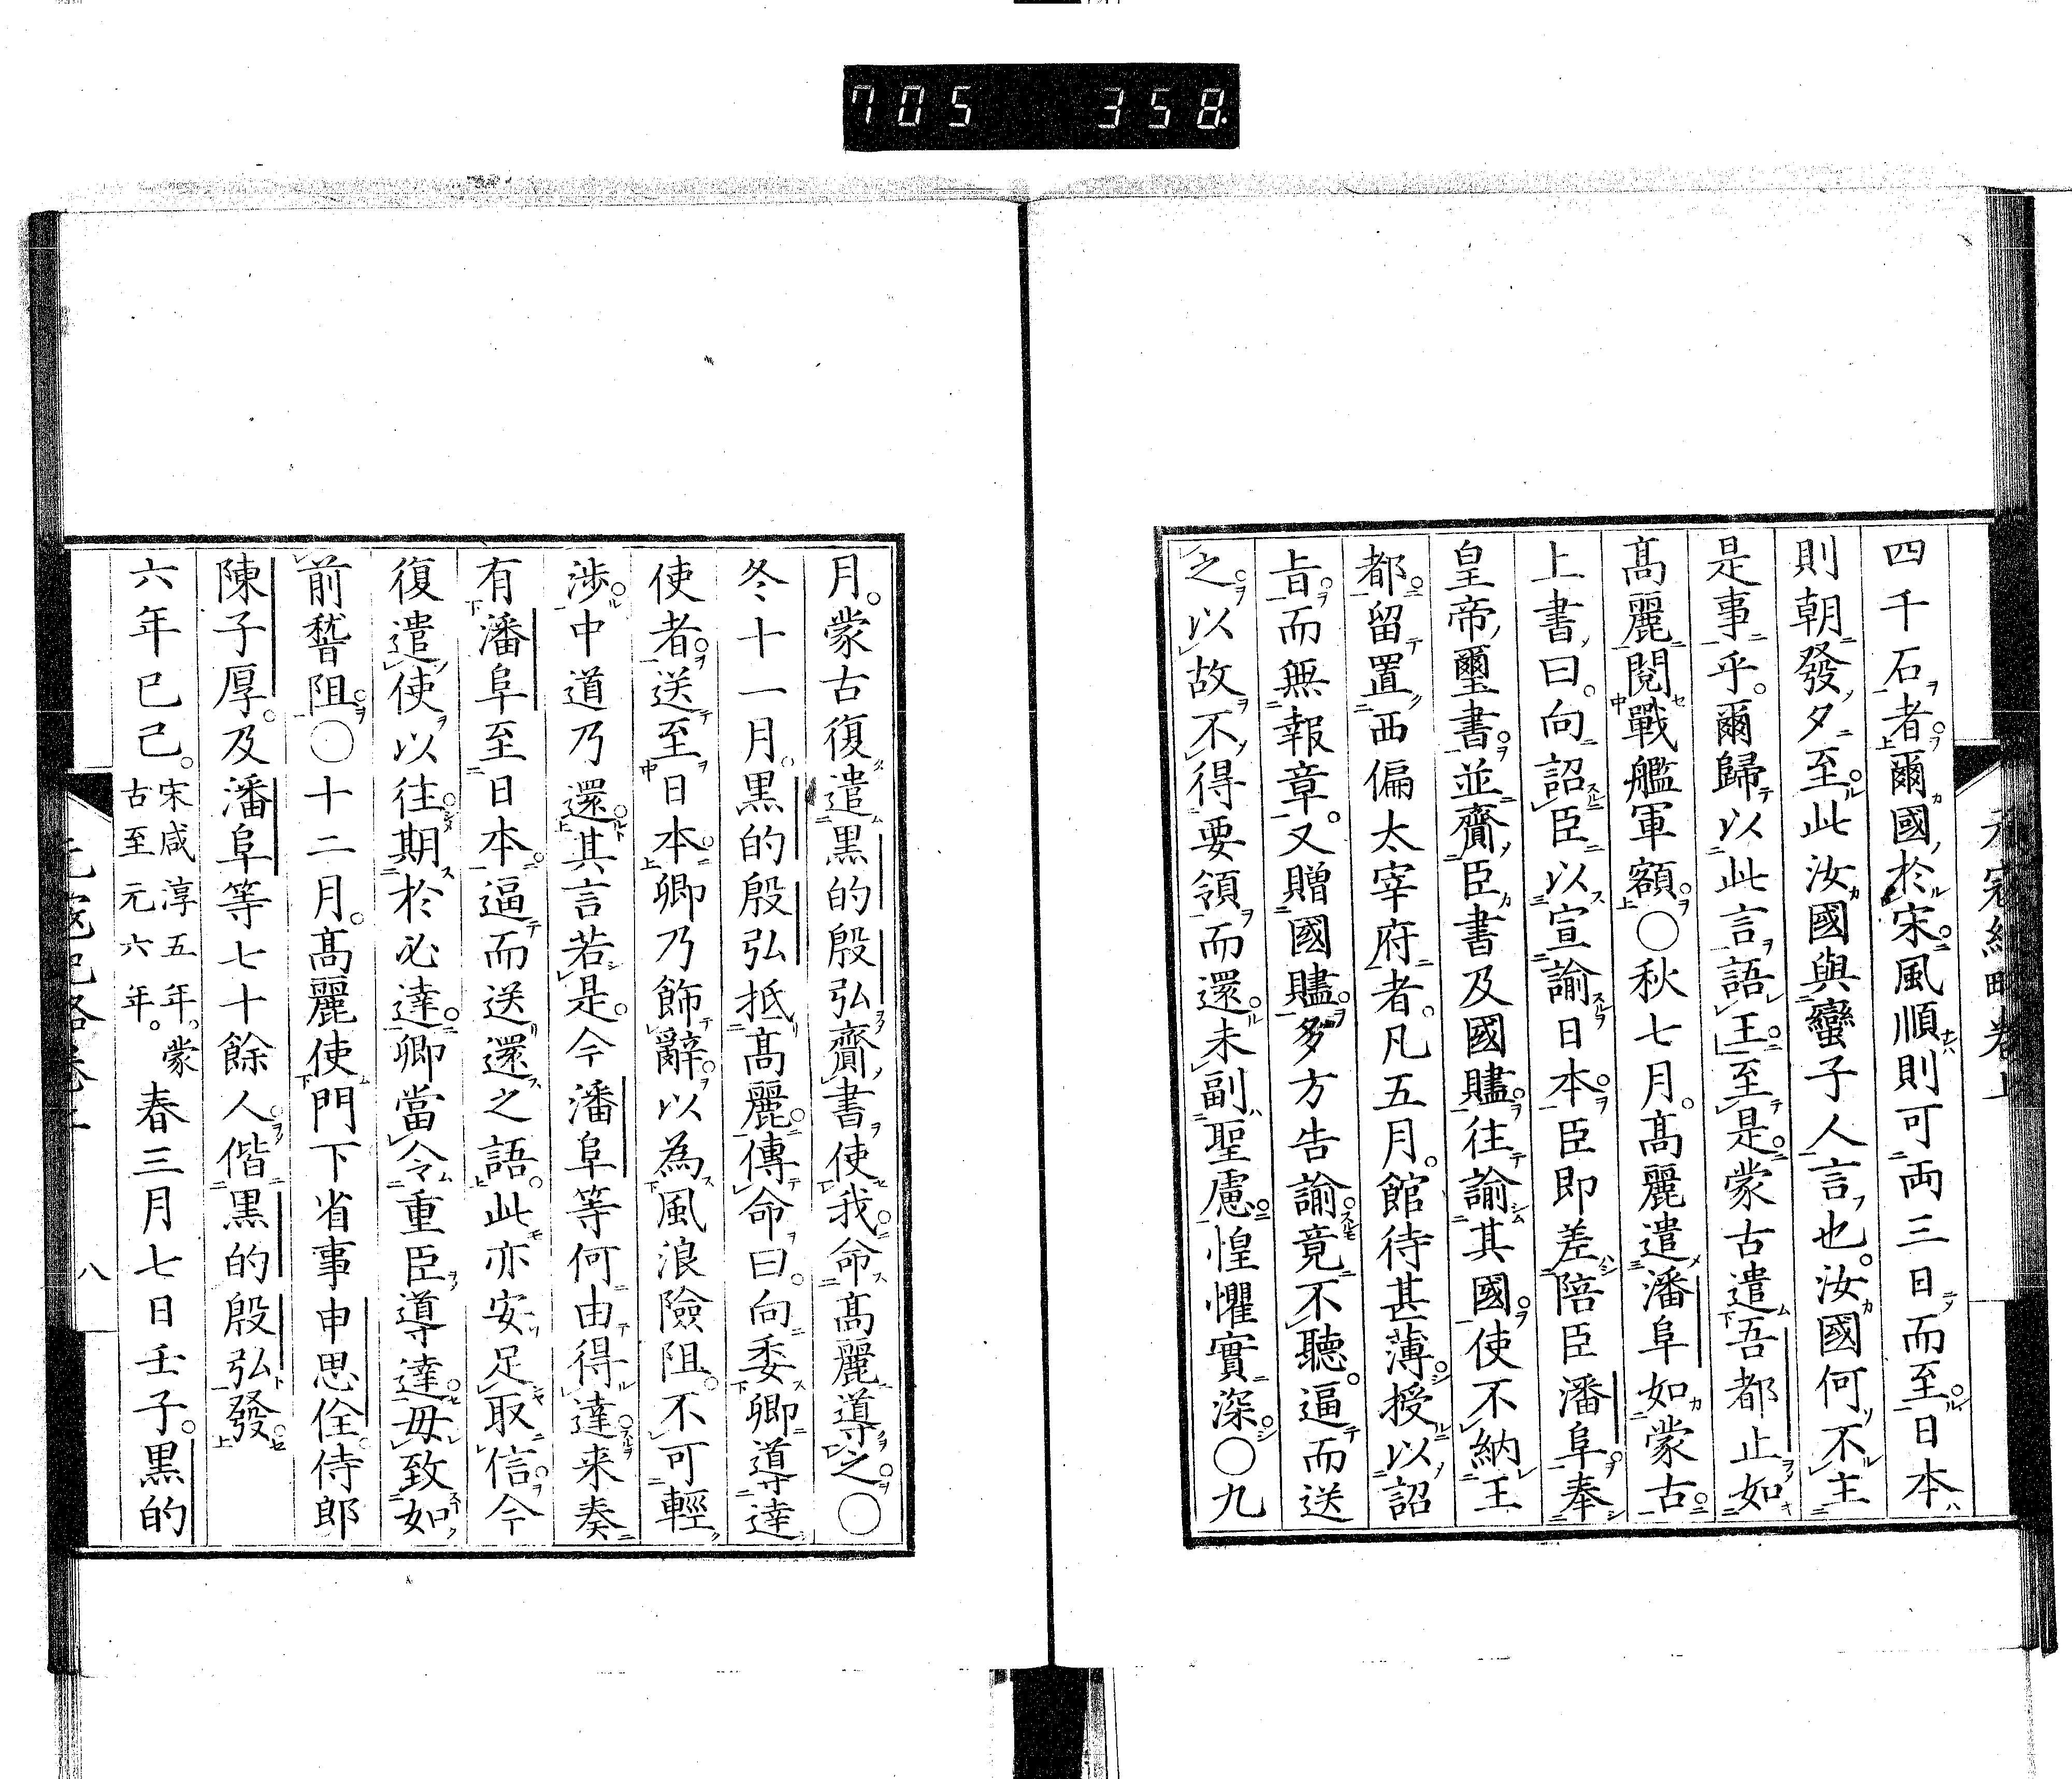 705 358
四千石者爾國於宋風順則可両三日而至日本
則朝發夕至此汝國與蠻子人言也。汝國何不主
是事乎。爾歸以此言語王至是蒙古遣吾都止如
髙麗閲戰艦軍額〇秋七月。髙麗遣潘阜如蒙古
上書曰。向詔臣以宣諭日本臣即差陪臣潘阜奉
皇帝璽書並齎臣書及國贐往諭其國使不納王
都留置西偏太宰府者。凡五月。館待甚薄授以詔
旨而無報章。又贈國贐多方告諭竟不聽。逼而送
之以故不得要領而還未副聖慮惶懼實深〇九
月。蒙古復遣黒的殷弘齎書使我命髙麗導之〇
冬十一月。黒的殷弘抵髙麗傳命曰。向委卿導達
使者送至日本卿乃飾辭以為風浪險阻。不可輕
渉中道乃還其言若是。今潘阜等何由得達来奏
有潘阜至日本逼而送還之語。此亦安足取信今
復遣使以往期於必達卿當令重臣導達毋致如
前稽阻〇十二月。髙麗使門下省事申思佺侍郎
陳子厚。及潘阜等七十餘人偕黒的殷弘發
六年巳己。宋咸淳五年。蒙古至元六年。春三月七日壬子。黒的
元寇紀略卷上
八